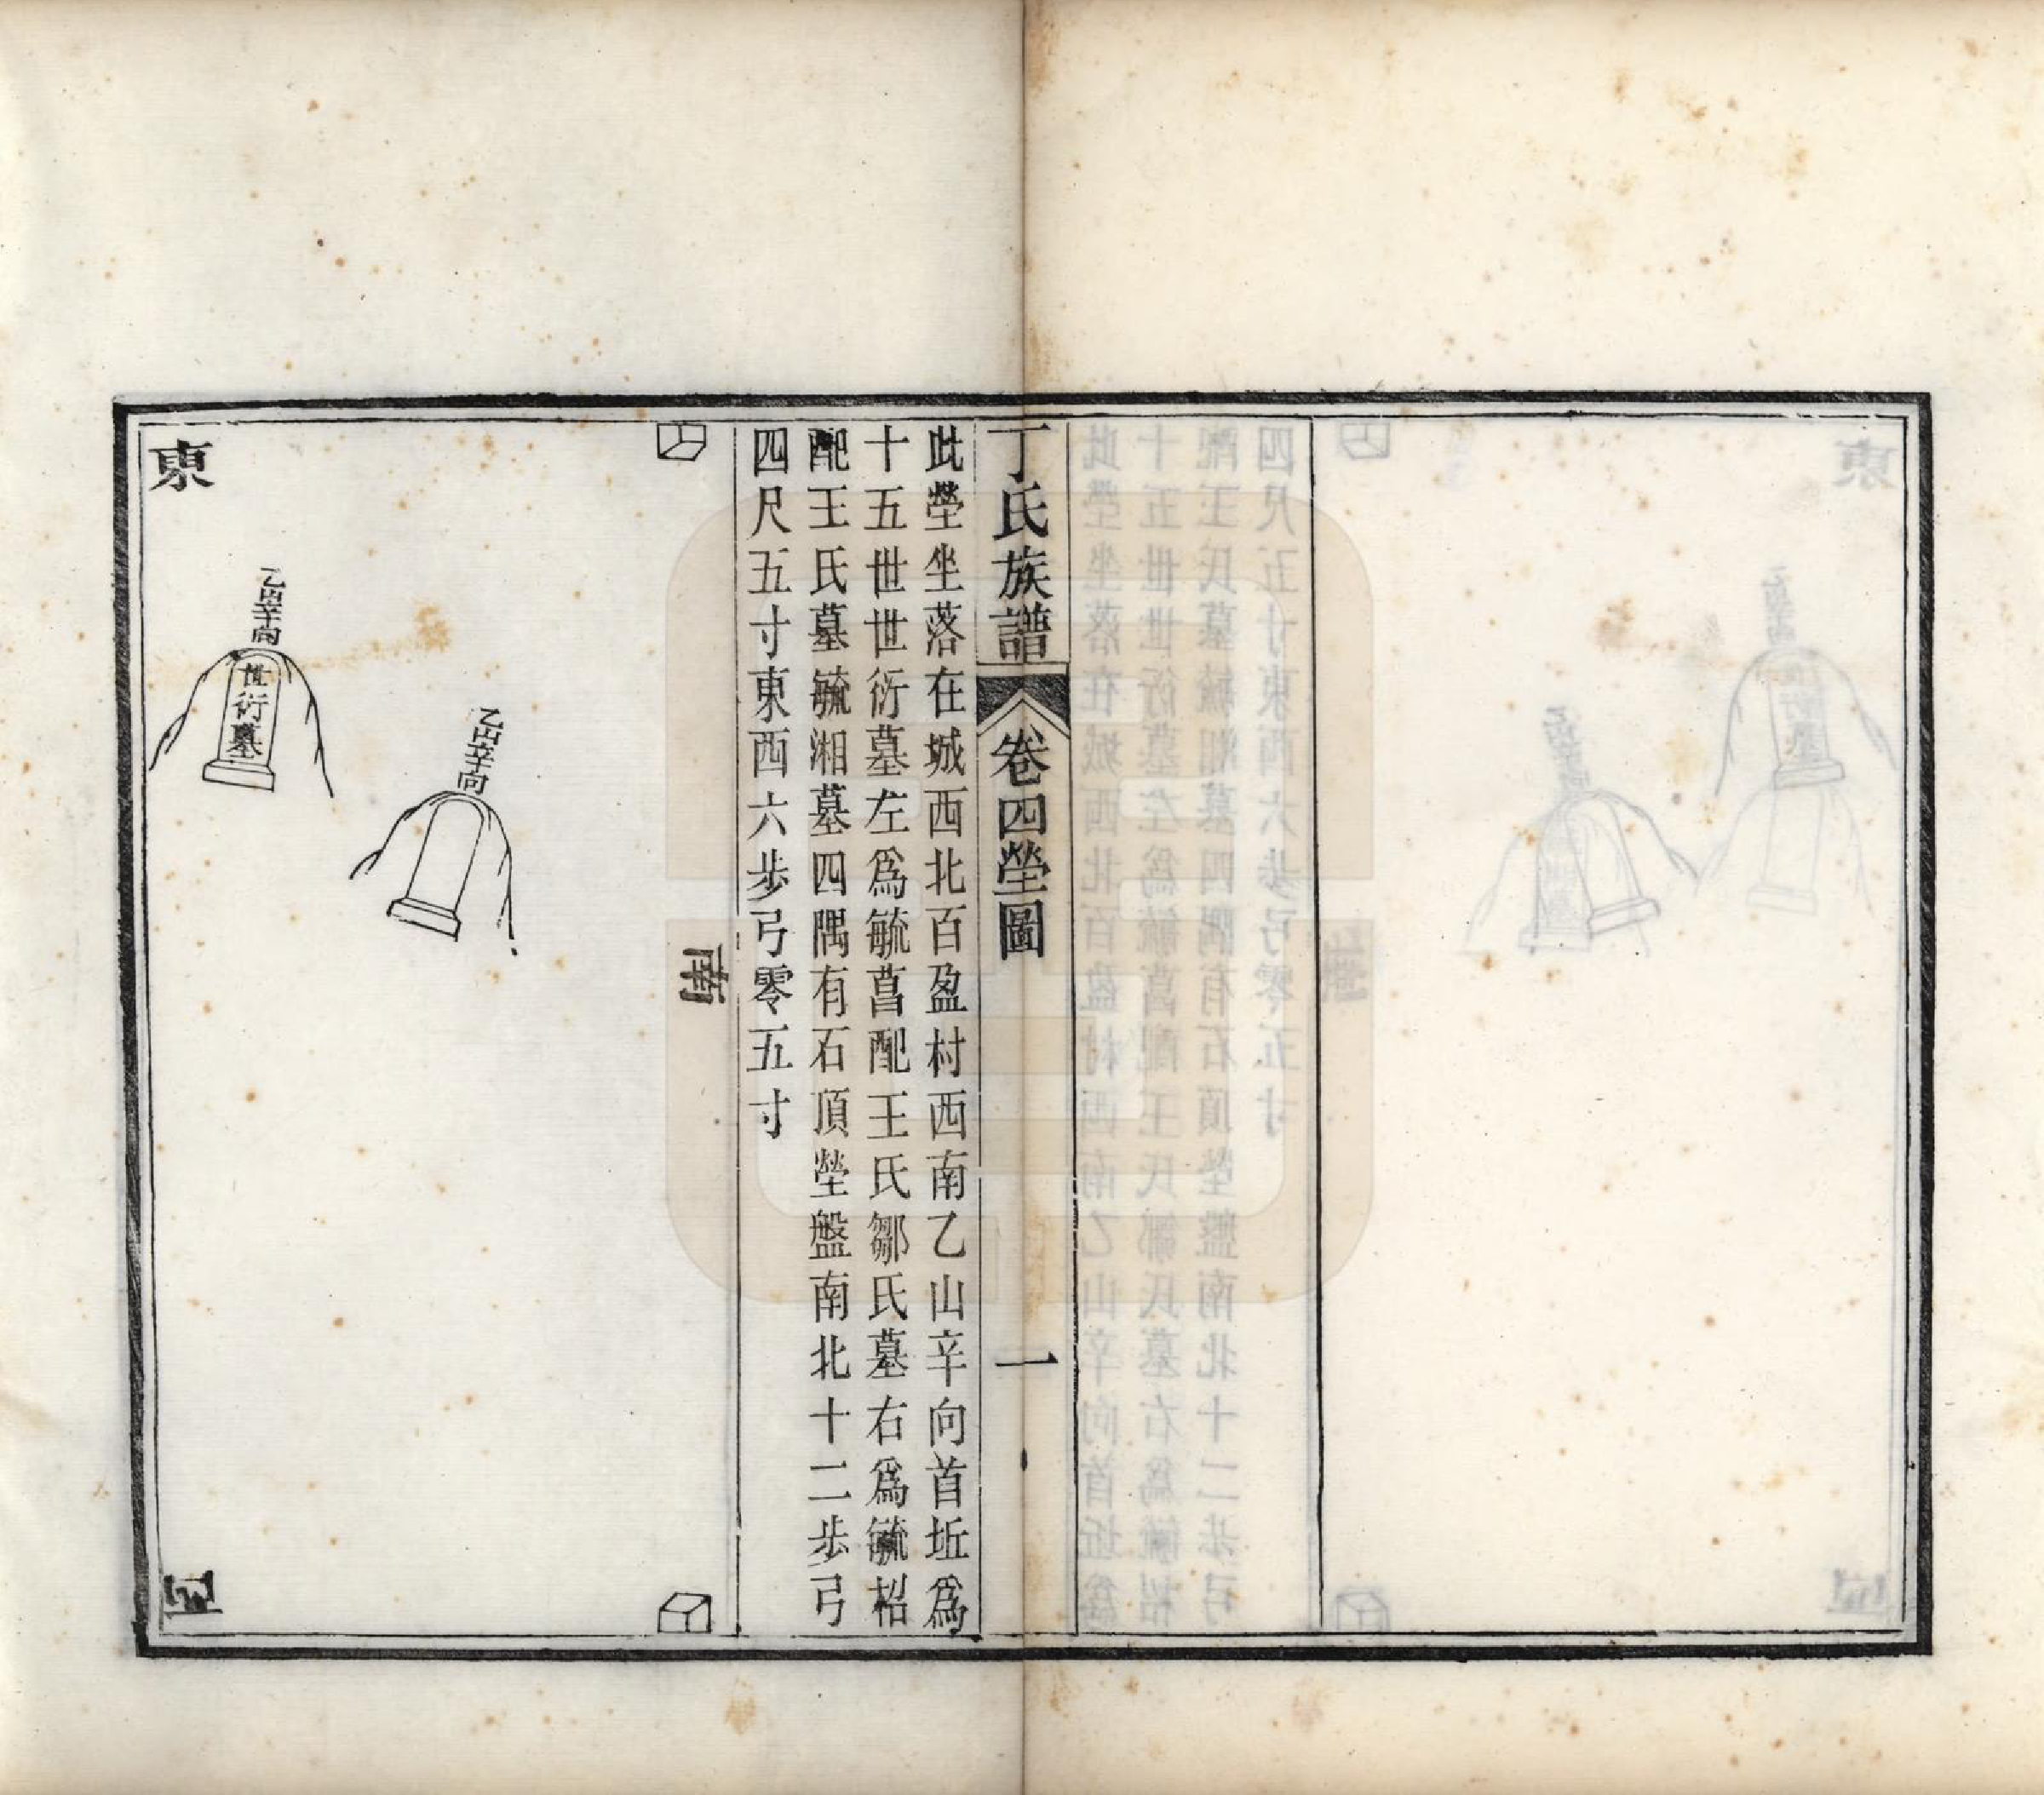 丁氏族譜
卷四塋圖
一
此塋坐落在城西北百盈村西南乙山辛向首坵爲
十五世世衍墓左爲毓菖配王氏鄒氏墓右爲毓柖
配王氏墓毓湘墓四隅有石頂塋盤南北十二步弓
四尺五寸東西六步弓零五寸
南
乙山辛向
乙山辛向
世衍墓
東